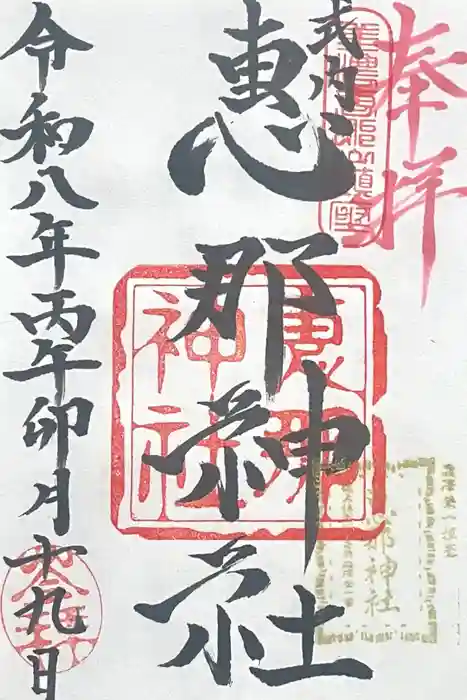 奉拝
式内
恵那神社
恵那
神社
恵那神社
令和八年丙午卯月十九日